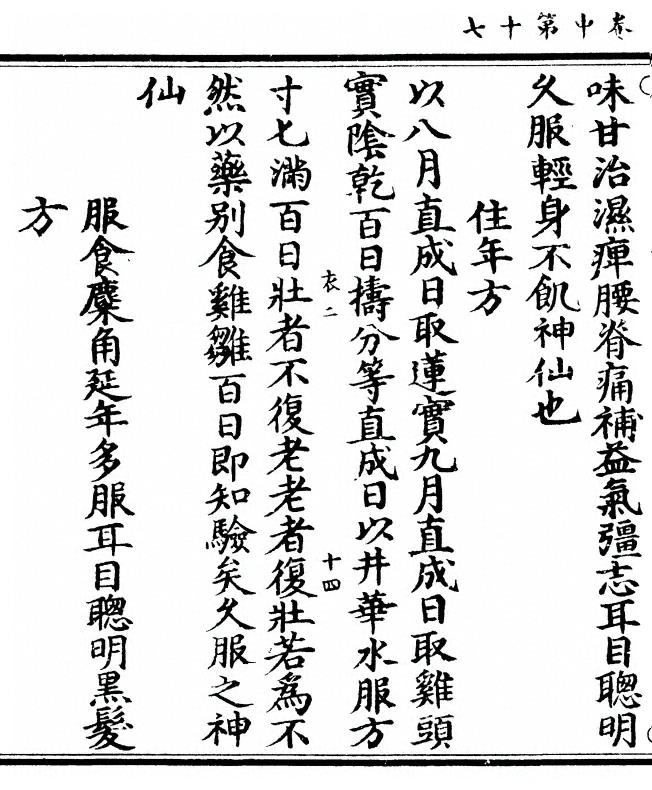 卷中第十七
味甘治濕痺腰脊痛補益氣彊志耳目聰明
久服輕身不飢神仙也
住年方
以八月直成日取蓮實九月直成日取雞頭
實陰乾百日擣分等直成日以井華水服方
衣二 十四
寸七滿百日壯者不復老老者復壯若為不
然以藥別食雞雛百日即知驗矣久服之神
仙
服食麋角延年多服耳目聰明黑髮
方